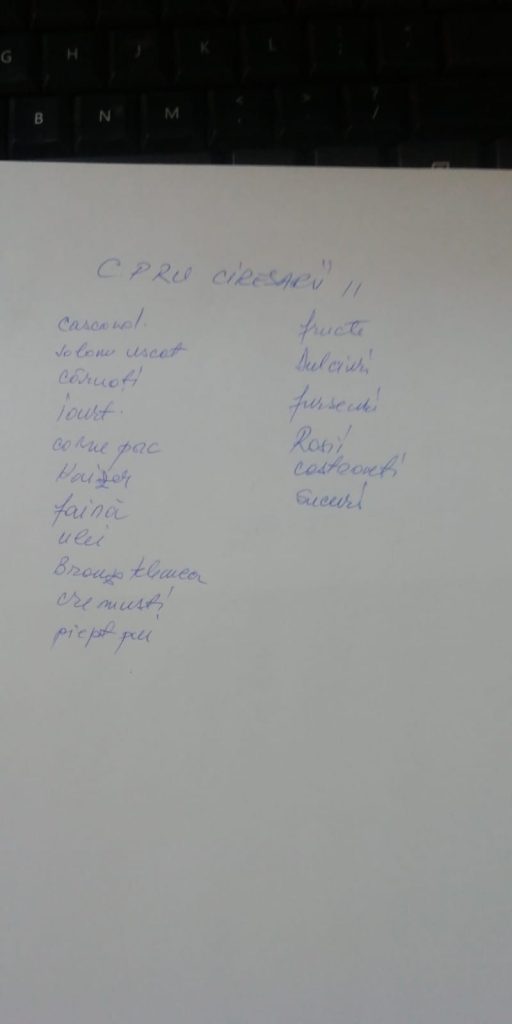 G H J K L : ;
B N M < , > . ? /
C PRU CIRESARII II
cascaval
salam uscat
cârnati
iaurt
carne porc
Kaizer
faină
ulei
Branza telemea
cremusti
piept pui
fructe
Dulciuri
fursecuri
Rosii
castraveti
Sucuri